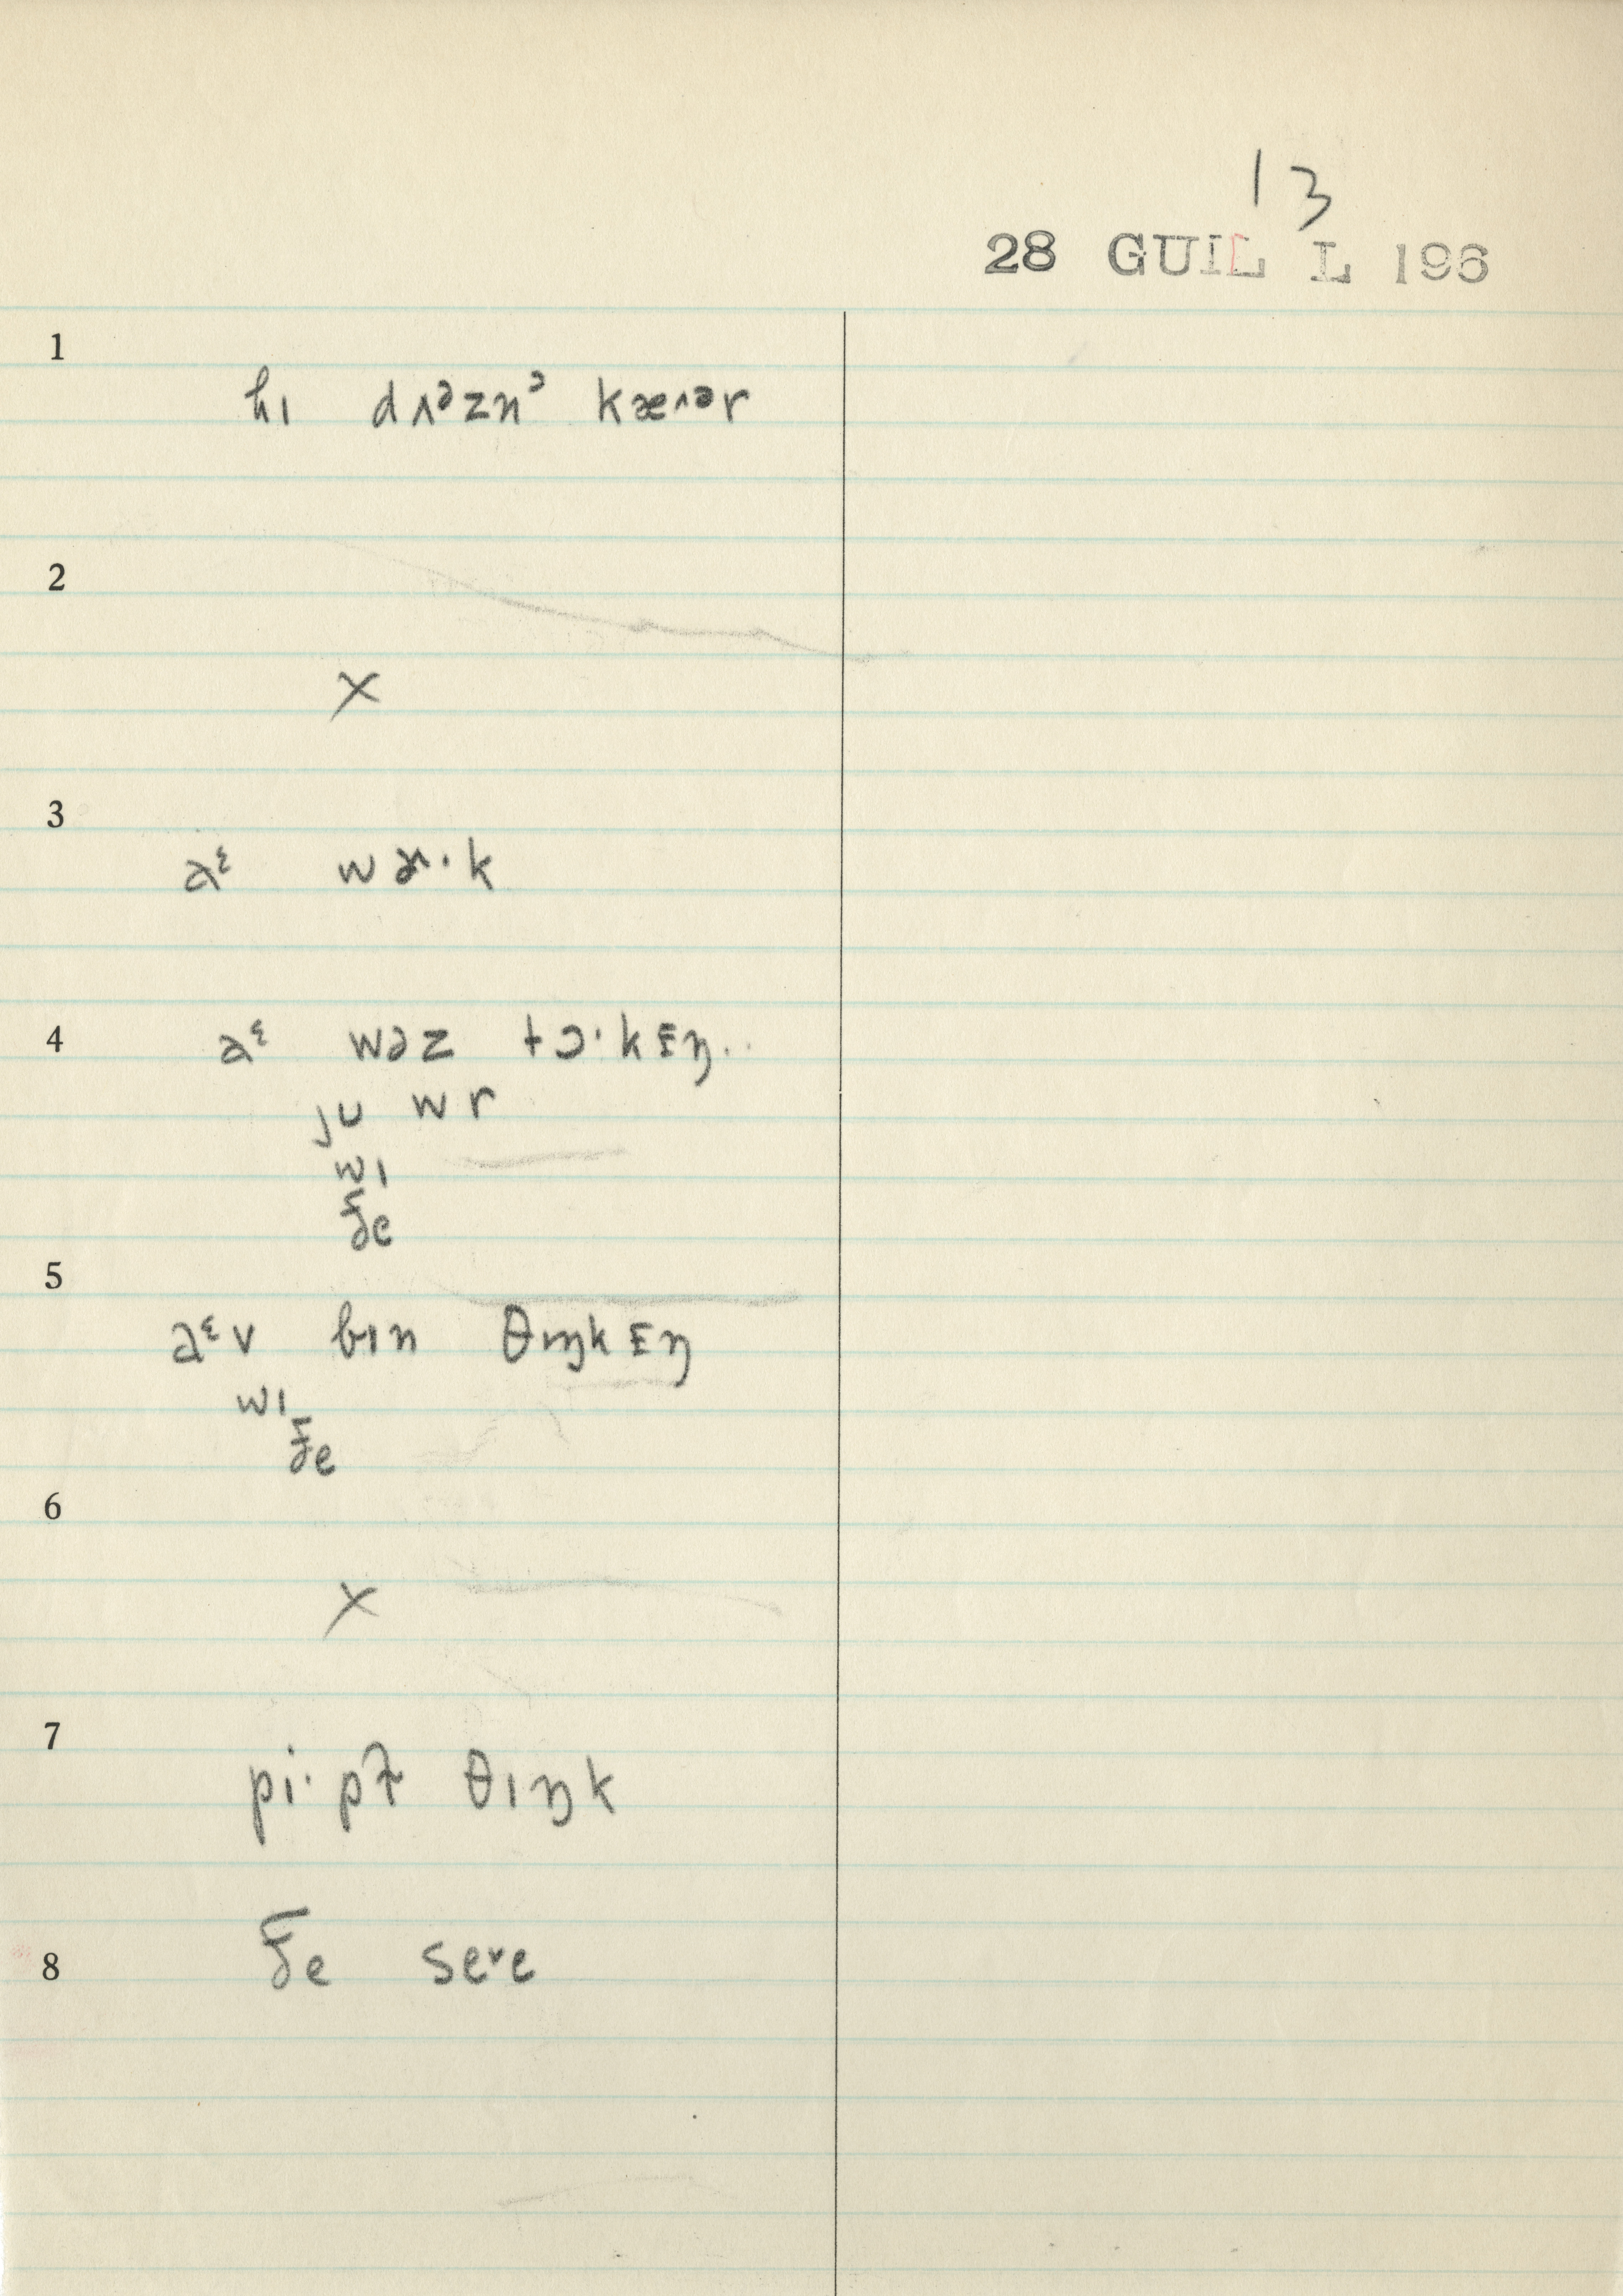 13
28 GUIL L 196
1
hɪ dʌᵊznᵊ kæ^ər
2
X
3
aᵋ wɚ·k
4
aᵋ wəz tɔ·kɪŋ..
ju wr
wɪ
ðe
5
aᵋv bɪn θɪŋkɪŋ
wɪ
ðe
6
X
7
pi·pɫ θɪŋk
8
ðe seᵛe